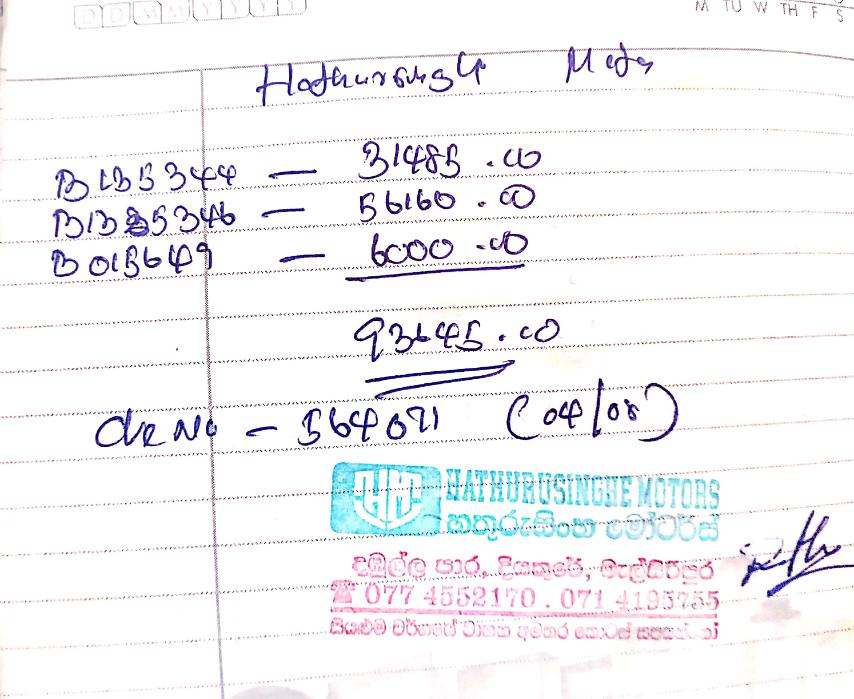 D D M M Y Y Y Y
M TU W TH F S
Hathurusingh Motors
B135344 — 31485.00
B135346 — 56160.00
B015649 — 6000.00
93645.00
Che No - 564071 (04/08)
HM
HATHURUSINGHE MOTORS
හතුරුසිංහ මෝටර්ස්
දඹුල්ල පාර, දියකුරේ, මැල්සිරිපුර
☎ 077 4552170 . 071 4195755
සියළුම වර්ගයේ වාහන අමතර කොටස්